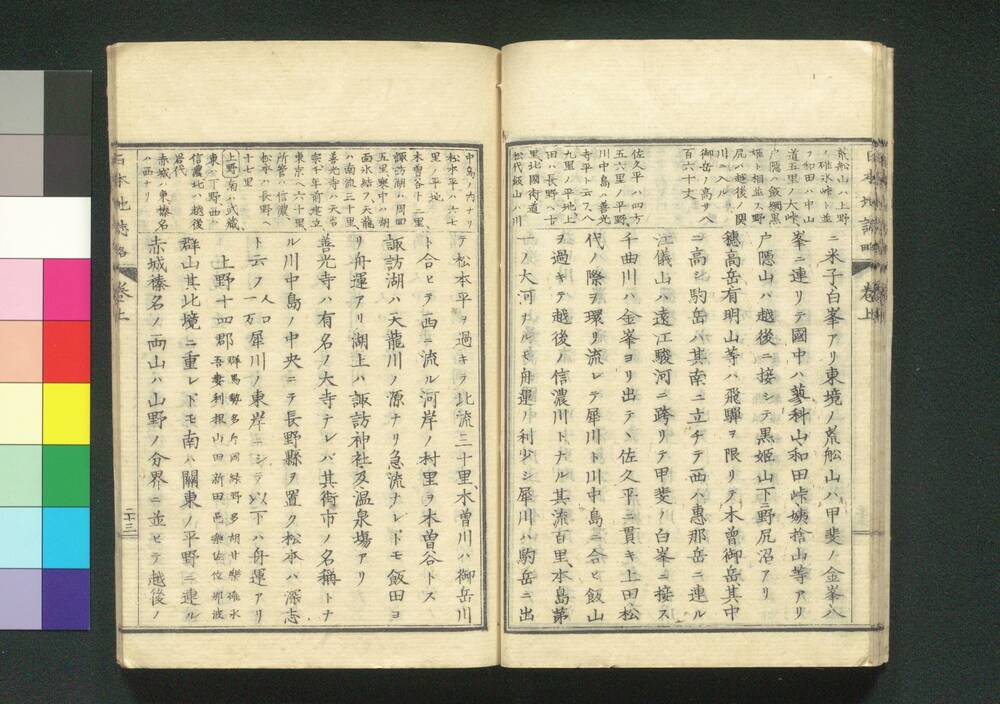 荒船山ハ上野
ノ碓氷峠ト並
フ和田ハ中山
道五里ノ大峠
戸隠ハ飯縄黒
姫ト相並ス野
尻ハ越後ノ関
川ニ入ル
御岳ノ高サ八
百六十丈
佐久平ハ四方
五六里ノ平野
川中島ハ善光
寺平ト云フ八
九里ノ平地上
田ハ長野ヘ十
里北國街道
松代飯山ハ川
ニ米子白峯アリ東境ノ荒舩山ハ甲斐ノ金峯八
峯ニ連リテ國中ハ蓼科山和田峠姨捨山等アリ
戸隠山ハ越後ニ接シテ黒姫山下ニ野尻沼アリ
穗高岳有明山等ハ飛驒ヲ限リテ木曽御岳其中
ニ高シ駒岳ハ其南ニ立チテ西ハ惠那岳ニ連ル
江儀山ハ遠江駿河ニ跨リテ甲斐ノ白峯ニ接ス
千曲川ハ金峯ヨリ出テヽ佐久平ニ貫キ上田松
代ノ際ヲ環リ流レテ犀川ト川中島ニ合ヒ飯山
ヲ過キテ越後ノ信濃川トナル其流百里本島第
一ノ大河ナルモ舟運ノ利少シ犀川ハ駒岳ニ出
日本地誌略
巻上
中島ノ内ナリ
松本平ハ六七
里ノ平地
木曽谷ト二里
諏訪湖ハ周回
五里寒中ハ湖
面氷結ヲ天龍
ハ南流三十里
善光寺ハ天台
宗千年前建立
東京ヘ六十里
所管ハ信濃
松本ハ長野ヘ
十七里
上野ハ南ハ武蔵
東ハ下野西ハ
信濃北ハ越後
岩代
赤城ハ東榛名
ハ西ナリ
テ松本平ヲ過キテ比流三十里木曽川ハ御岳川
ト合ヒテ西ニ流ル河岸ノ村里ヲ木曽谷トス
諏訪湖ハ天龍川ノ源ナリ急流ナレドモ飯田ヨ
リ舟運アリ湖上ハ諏訪神社及温泉場アリ
善光寺ハ有名ノ大寺テレバ其街市ノ名稱トナ
ル川中島ノ中央ニテ長野縣ヲ置ク松本ハ深志
ト云フ人口一万犀川ノ東岸ニシテ以下ハ舟運アリ
上野十四郡群馬勢多片岡緑野多胡甘樂碓氷吾妻利根山田新田邑樂佐位那波
群山其北境ニ重レドモ南ハ關東ノ平野ニ連ル
赤城榛名ノ両山ハ山野ノ分界ニ並ヒテ越後ノ
日本地誌略
巻上
二十三